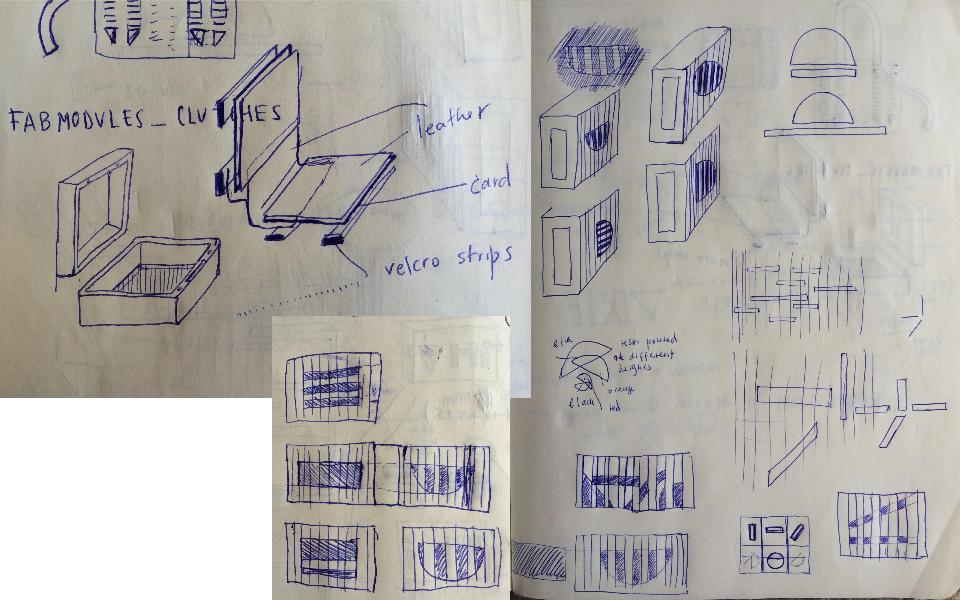 FABMODULES_ CLUTCHES
leather
card
velcro strips
blue
resin poured
at different
heights
orange
black
red